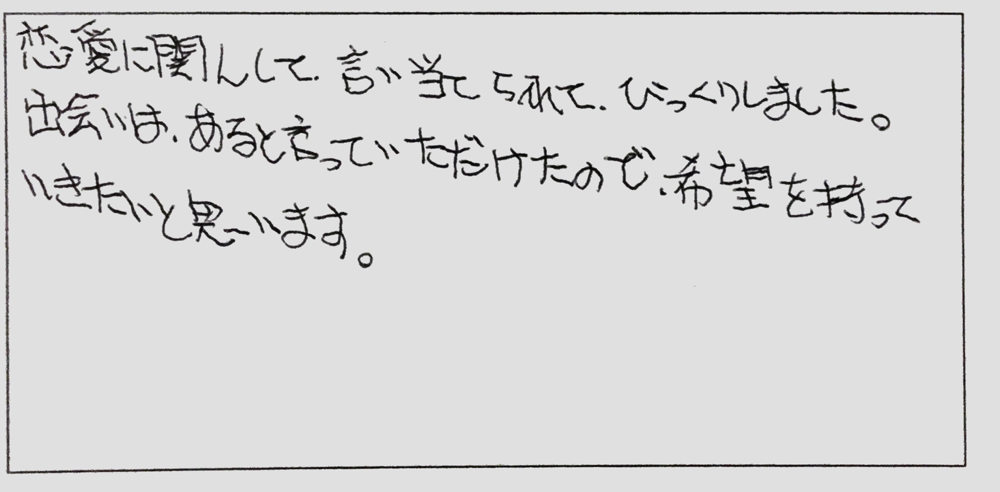 恋愛に関んして、言い当てられて、びっくりしました。
出会いは、あると言っていただけたので、希望を持って
いきたいと思います。